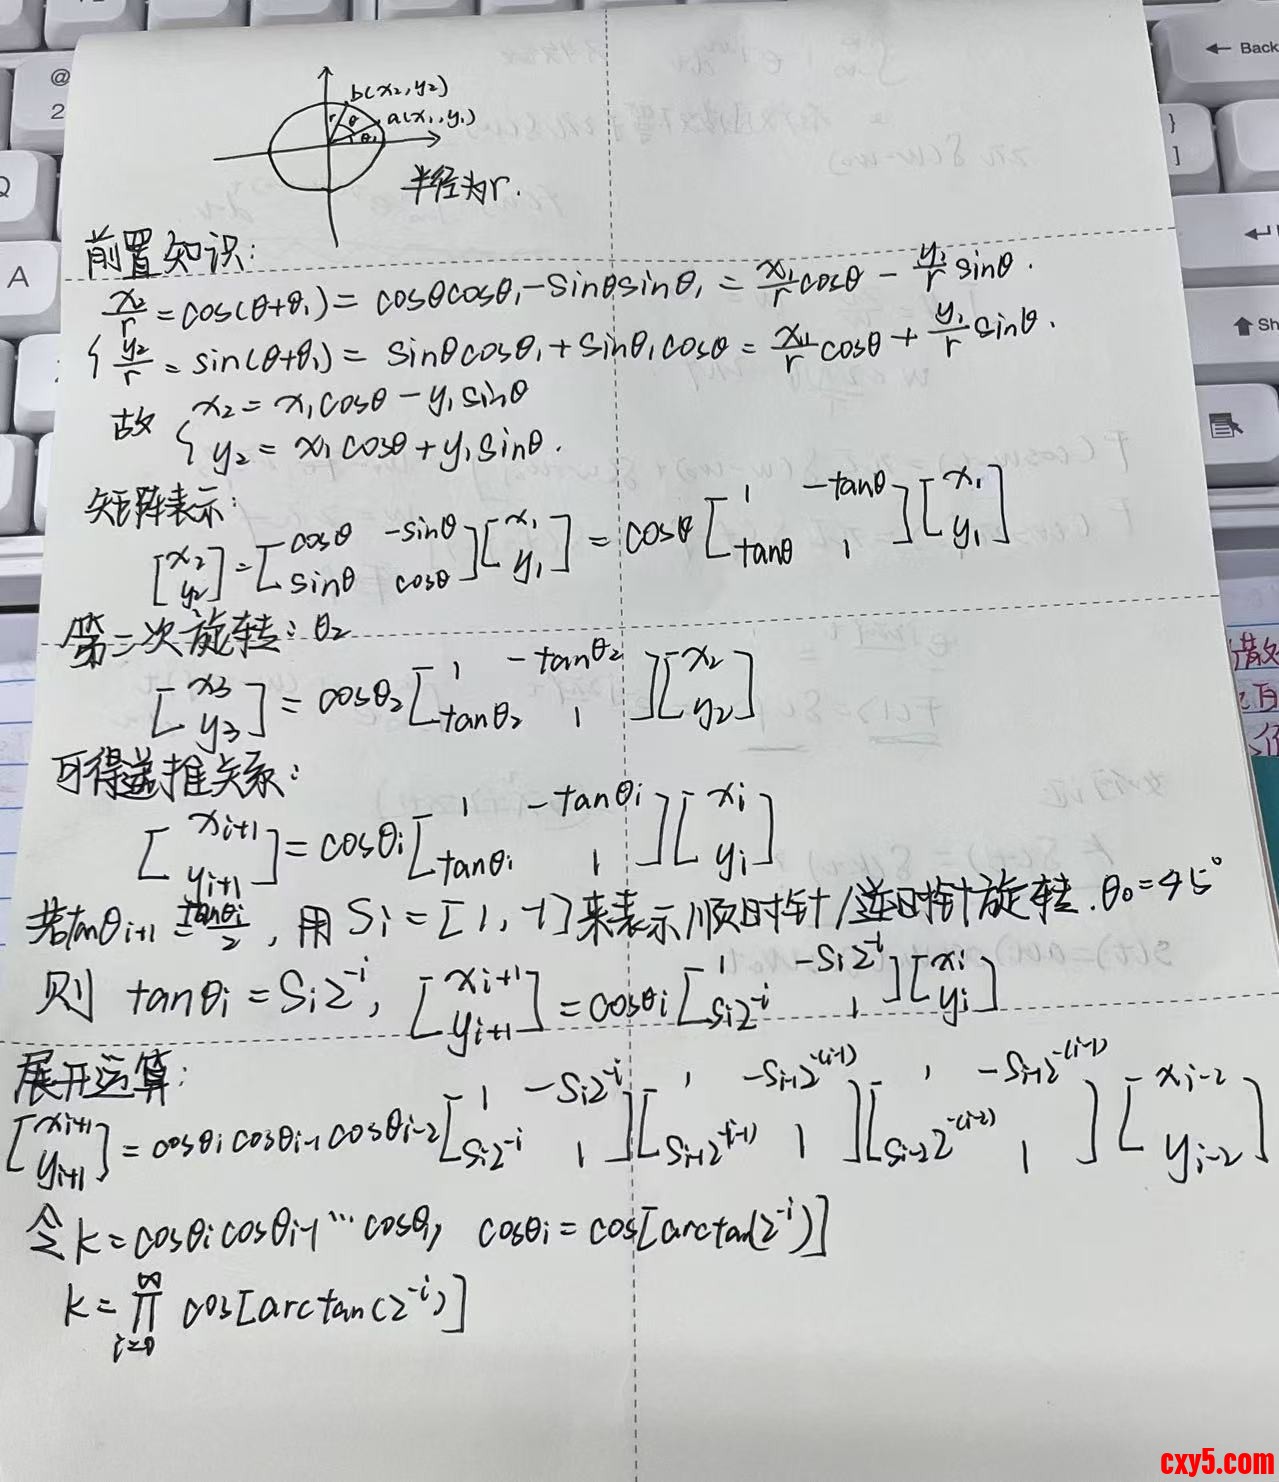 b(x₂,y₂)
a(x₁,y₁)
r θ
θ₁
半径为r.
前置知识:
x₂/r = cos(θ+θ₁) = cosθcosθ₁-sinθsinθ₁ = x₁/r cosθ - y₁/r sinθ.
{ y₂/r = sin(θ+θ₁) = sinθcosθ₁+sinθ₁cosθ = x₁/r cosθ + y₁/r sinθ.
故 { x₂ = x₁cosθ - y₁sinθ
y₂ = x₁cosθ + y₁sinθ.
矩阵表示:
[x₂ y₂] = [cosθ -sinθ sinθ cosθ][x₁ y₁] = cosθ[1 -tanθ tanθ 1][x₁ y₁]
第二次旋转: θ₂
[x₃ y₃] = cosθ₂[1 -tanθ₂ tanθ₂ 1][x₂ y₂]
可得递推关系:
[xᵢ₊₁ yᵢ₊₁] = cosθᵢ[1 -tanθᵢ tanθᵢ 1][xᵢ yᵢ]
若tanθᵢ₊₁ = tanθᵢ/2, 用Sᵢ = [1, -1]来表示顺时针/逆时针旋转. θ₀=45°
则 tanθᵢ = Sᵢ2⁻ⁱ, [xᵢ₊₁ yᵢ₊₁] = cosθᵢ[1 -Sᵢ2⁻ⁱ Sᵢ2⁻ⁱ 1][xᵢ yᵢ]
展开运算:
[xᵢ₊₁ yᵢ₊₁] = cosθᵢcosθᵢ₋₁cosθᵢ₋₂[1 -Sᵢ2⁻ⁱ Sᵢ2⁻ⁱ 1][1 -Sᵢ₋₁2⁻⁽ⁱ⁻¹⁾ Sᵢ₋₁2⁻⁽ⁱ⁻¹⁾ 1][1 -Sᵢ₋₂2⁻⁽ⁱ⁻¹⁾ Sᵢ₋₂2⁻⁽ⁱ⁻²⁾ 1][xᵢ₋₂ yᵢ₋₂]
令k = cosθᵢcosθᵢ₋₁…cosθ₁, cosθᵢ = cos[arctan(2⁻ⁱ)]
k = ∏ᵢ₌₀^∞ cos[arctan(2⁻ⁱ)]
@
2
Q
A
← Back
}
]
Sh
cxy5.com